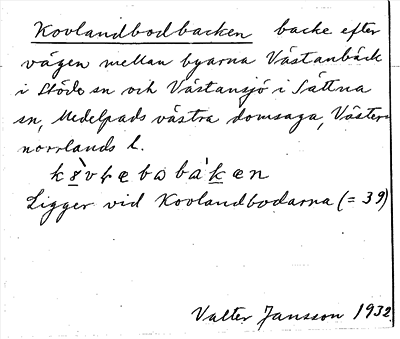 Kovlandbodbacken backe efter
vägen mellan byarna Västanbäck
i Stöde sn och Västansjö i Sättna
sn, Medelpads västra domsaga, Väster-
norrlands l.
Ligger vid Kovlandbodarna (= 39)
Valter Jansson 1932